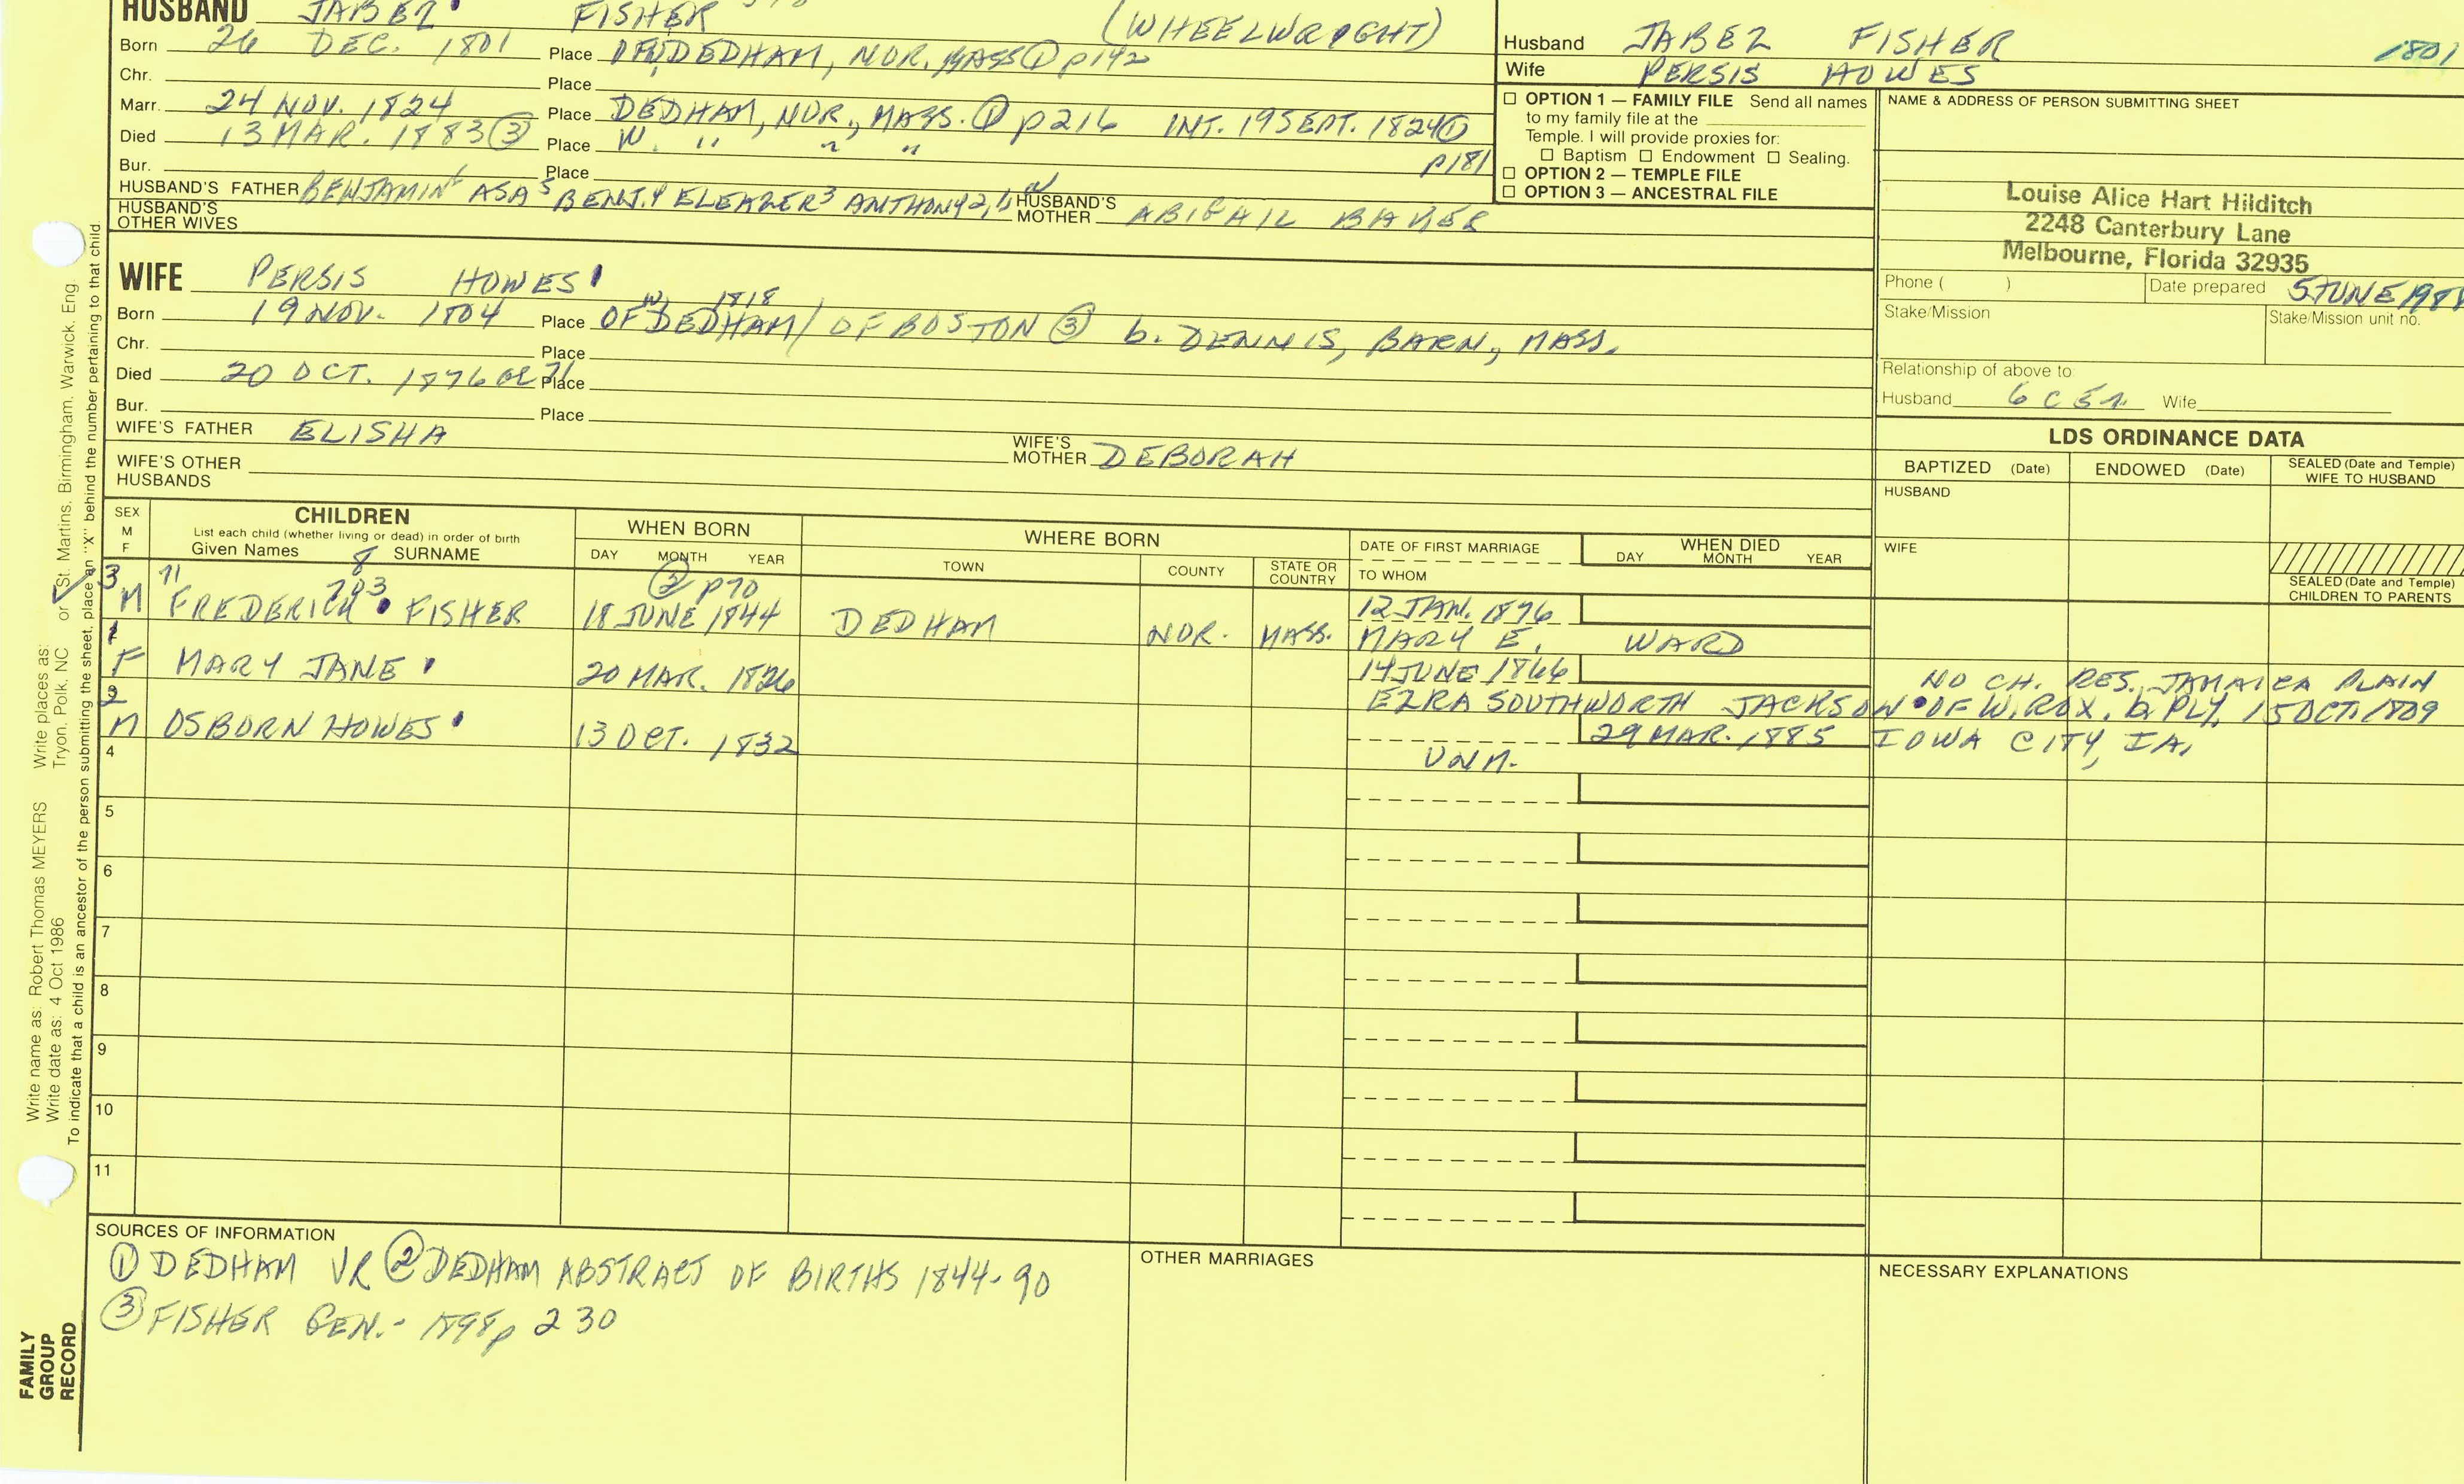 HUSBAND JABEZ FISHER (WHEELWRIGHT)
Born 26 DEC. 1801 Place DEDHAM, NOR. MASS ① p142
Chr. Place
Marr. 24 NOV. 1824 Place DEDHAM, NOR., MASS. ① p216 INT. 19 SEPT. 1824 ① p181
Died 13 MAR. 1883 ③ Place W. " " "
Bur. Place
HUSBAND'S FATHER BENJAMIN 6 ASA 5 BENJ. 4 ELEAZER 3 ANTHONY 2, 1 HUSBAND'S MOTHER ABIGAIL BAKER
HUSBAND'S OTHER WIVES
Husband JABEZ FISHER 1801
Wife PERSIS HOWES
☐ OPTION 1 — FAMILY FILE Send all names
to my family file at the
Temple. I will provide proxies for:
☐ Baptism ☐ Endowment ☐ Sealing.
☐ OPTION 2 — TEMPLE FILE
☐ OPTION 3 — ANCESTRAL FILE
NAME & ADDRESS OF PERSON SUBMITTING SHEET
Louise Alice Hart Hilditch
2248 Canterbury Lane
Melbourne, Florida 32935
Phone ( ) Date prepared 5 JUNE
Stake/Mission Stake/Mission unit no.
Relationship of above to:
Husband 6 C 5 Wife
WIFE PERSIS HOWES
W. 1818
Born 19 NOV. 1804 Place OF DEDHAM / OF BOSTON ③ b. DENNIS, BARN, MASS.
Chr. Place
Died 20 OCT. 1876 OR 71 Place
Bur. Place
WIFE'S FATHER ELISHA WIFE'S MOTHER DEBORAH
WIFE'S OTHER HUSBANDS
LDS ORDINANCE DATA
BAPTIZED (Date) ENDOWED (Date) SEALED (Date and Temple) WIFE TO HUSBAND
HUSBAND
WIFE
SEALED (Date and Temple) CHILDREN TO PARENTS
SEX M F CHILDREN WHEN BORN WHERE BORN DATE OF FIRST MARRIAGE WHEN DIED
List each child (whether living or dead) in order of birth
Given Names SURNAME DAY MONTH YEAR TOWN COUNTY STATE OR COUNTRY TO WHOM DAY MONTH YEAR
8
3 703 ② p70
M FREDERICK FISHER 18 JUNE 1844 DEDHAM NOR. MASS. 12 JAN. 1876
MARY E. WARD
1
F MARY JANE 20 MAR. 1826 14 JUNE 1866 NO CH. RES. JAMAICA PLAIN
EZRA SOUTHWORTH JACKSON OF W. ROX. b. PLY. 15 OCT. 1809
2
M OSBORN HOWES 13 OCT. 1832 29 MAR. 1885 IOWA CITY, IA.
UNM.
4
5
6
7
8
9
10
11
SOURCES OF INFORMATION
① DEDHAM VR ② DEDHAM ABSTRACT OF BIRTHS 1844-90
③ FISHER GEN. - 1898 p 230
OTHER MARRIAGES
NECESSARY EXPLANATIONS
Write name as: Robert Thomas MEYERS Write places as:
Write date as: 4 Oct 1986 Tryon, Polk, NC or St. Martins, Birmingham, Warwick, Eng
To indicate that a child is an ancestor of the person submitting the sheet, place an "X" behind the number pertaining to that child
FAMILY
GROUP
RECORD